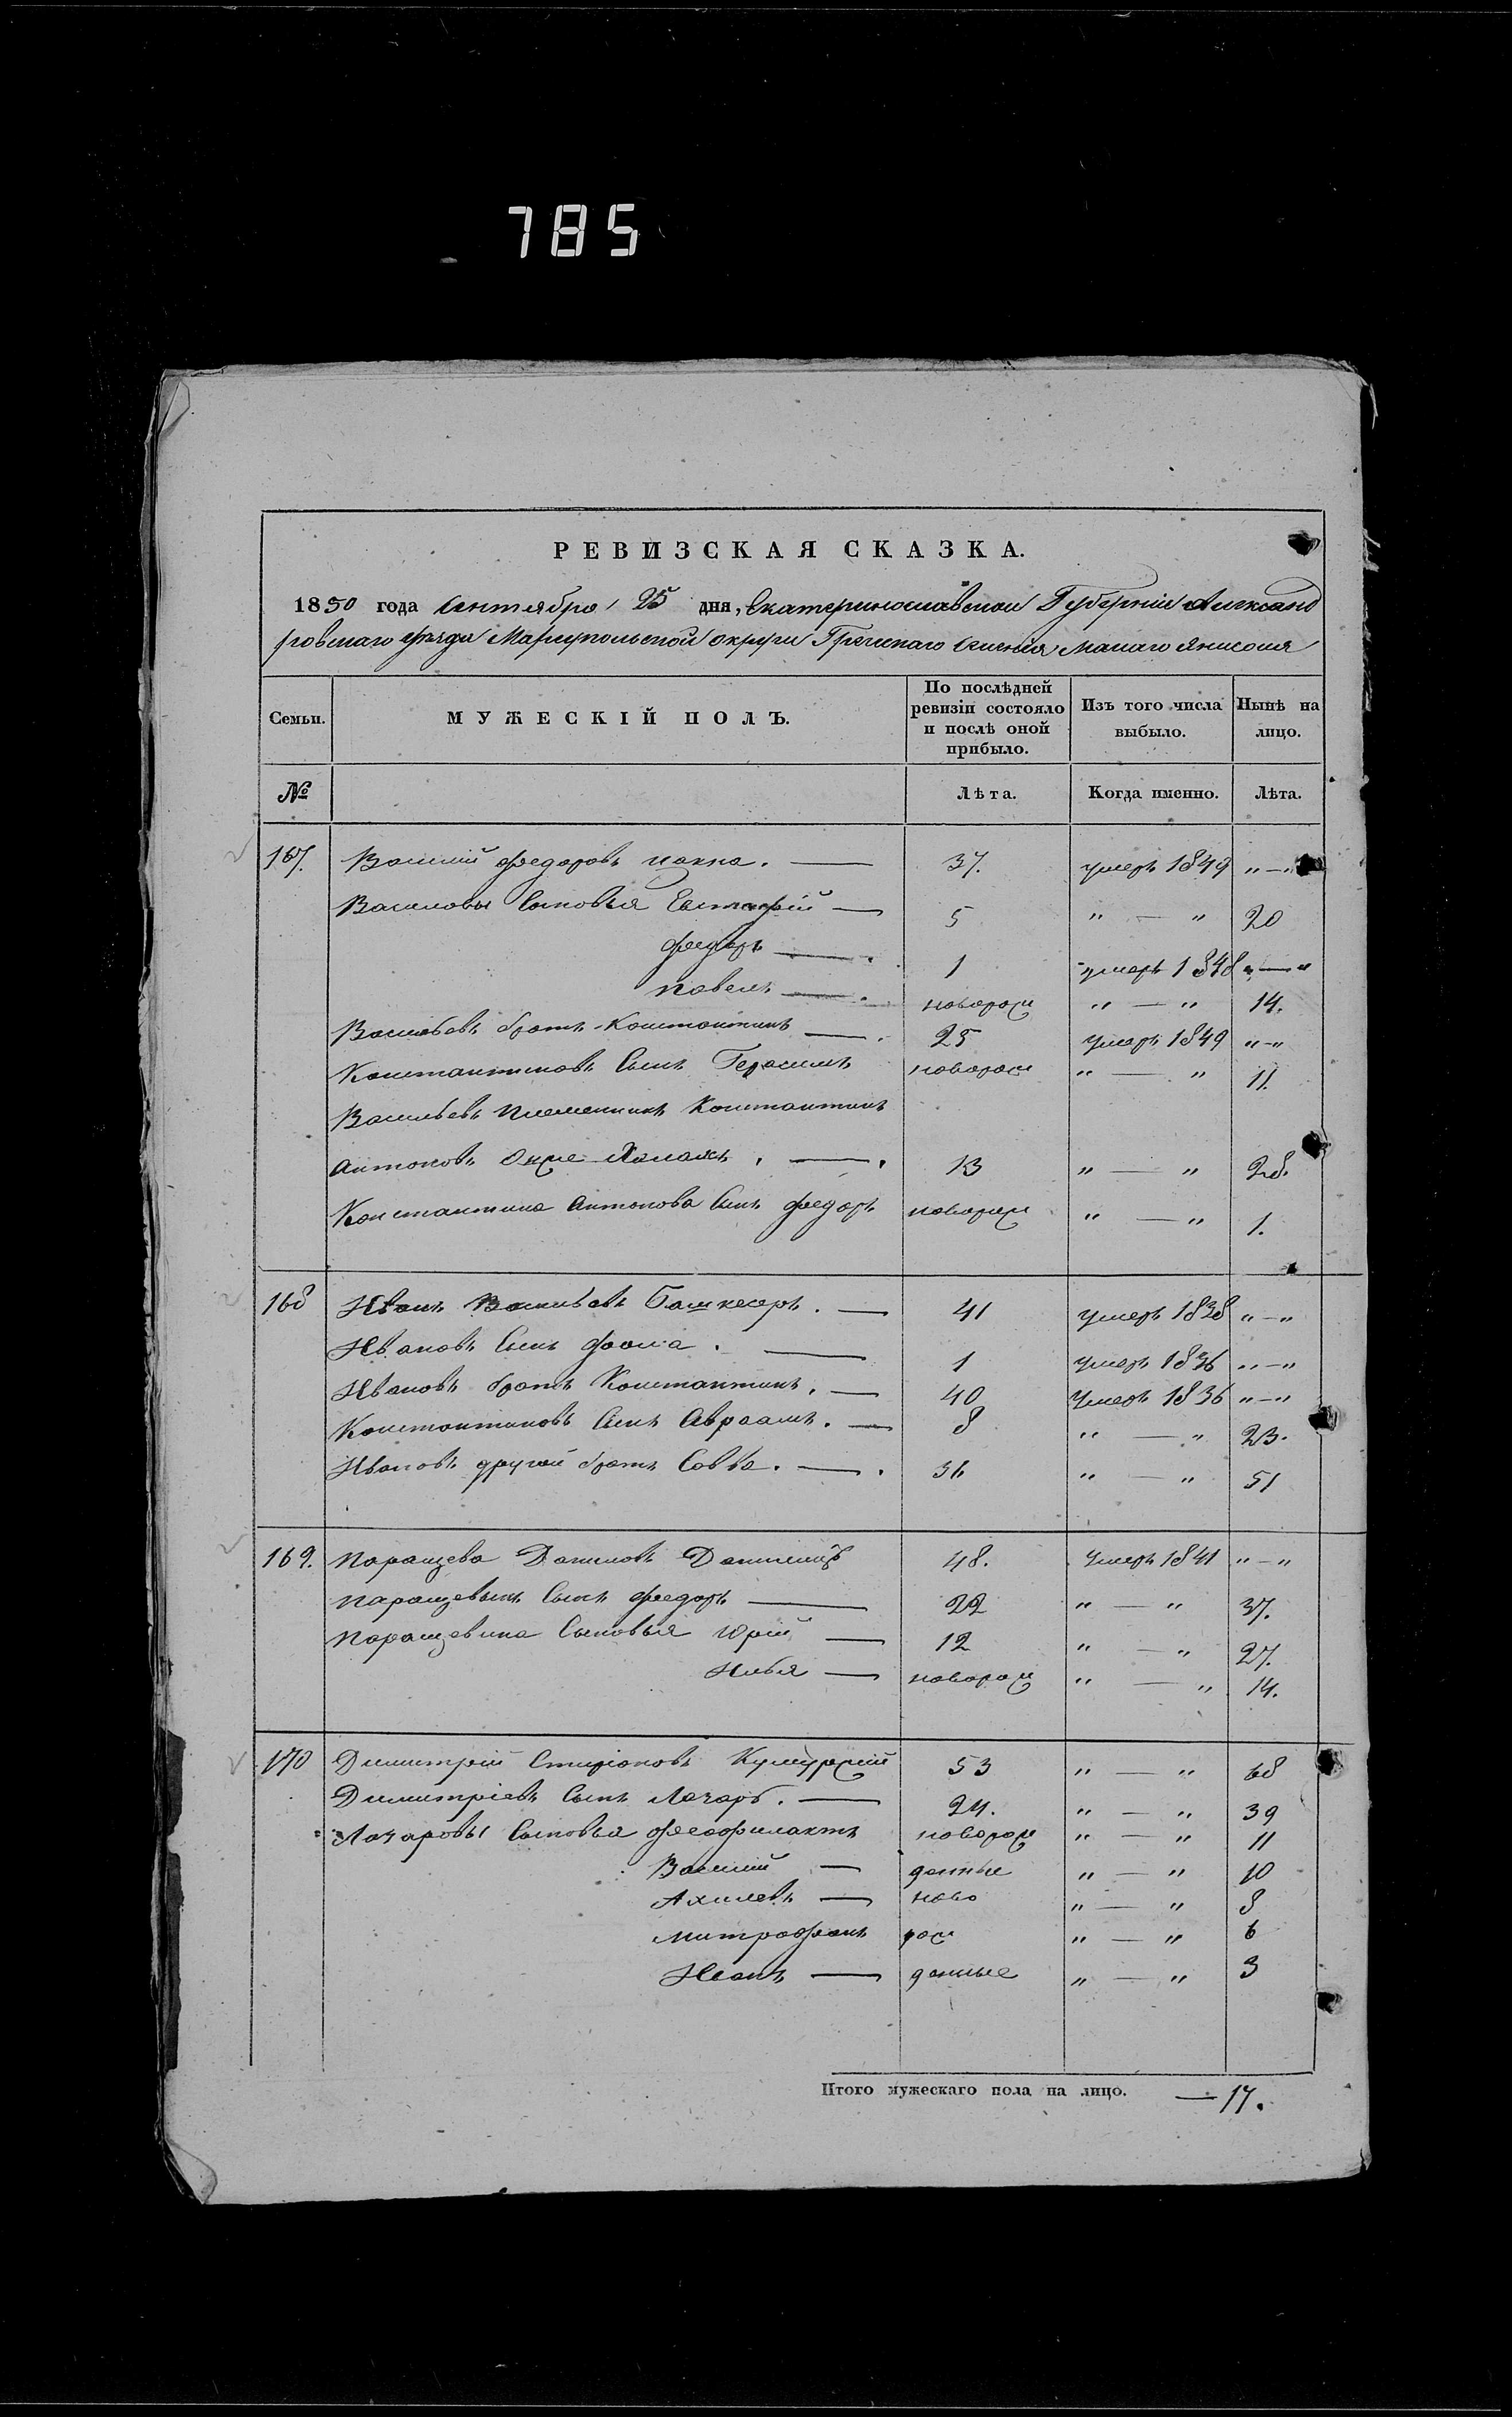 785
РЕВИЗСКАЯ СКАЗКА.
1850 года Сентября 25 дня, Екатеринославской Губерніи Александ
ровскаго уѣзда Маріупольской округи Греческаго селенія Малаго Янисоля
Семьи. МУЖЕСКІЙ ПОЛЪ. По послѣдней ревизіи состояло и послѣ оной прибыло. Изъ того числа выбыло. Нынѣ на лицо.
№ Лѣта. Когда именно. Лѣта.
167. Василий Федоровъ 37. умеръ 1849 „ — „
Василовы Сыновья Евстафій — 5 „ — „ 20
Федоръ — . 1 умеръ 1848 „ — „
Павелъ — . новорож „ — „ 14.
Васильевъ братъ Константинъ — . 25 умеръ 1849 „ - „
Константиновъ Сынъ Герасимъ новорож „ — „ 11.
Васильевъ племенникъ Константинъ
Антоновъ . — . 13 „ — „ 28.
Константина Антонова Сынъ Федоръ новорож „ — „ 1.
168 Иванъ Васильевъ Башкесеръ . — 41 умеръ 1838 „ — „
Ивановъ Сынъ Фома . — 1 умеръ 1836 „ — „
Ивановъ братъ Константинъ . — 40 умеръ 1836 „ — „
Константиновъ Сынъ Авраамъ . — 8 „ — „ 23.
Ивановъ другой братъ Савва . — . 36 „ — „ 51
169. Паращева Даниловъ 48. умеръ 1841 „ — „
Паращевинъ Сынъ Федоръ — 22 „ — „ 37.
Паращевина Сыновья Юрій — 12 „ — „ 27.
Илья — новорож „ — „ 14.
170 Димитрій 53 „ — „ 68
Димитріевъ Сынъ Лазарь . — 24. „ — „ 39
Лазаровы Сыновья Феофилактъ новорож „ — „ 11
Василій — данные „ — „ 10
Ахилевъ — ново „ — „ 8
Митрофанъ рож „ — „ 6
Иванъ — данные „ — „ 3
Итого мужескаго пола на лицо. — 17.